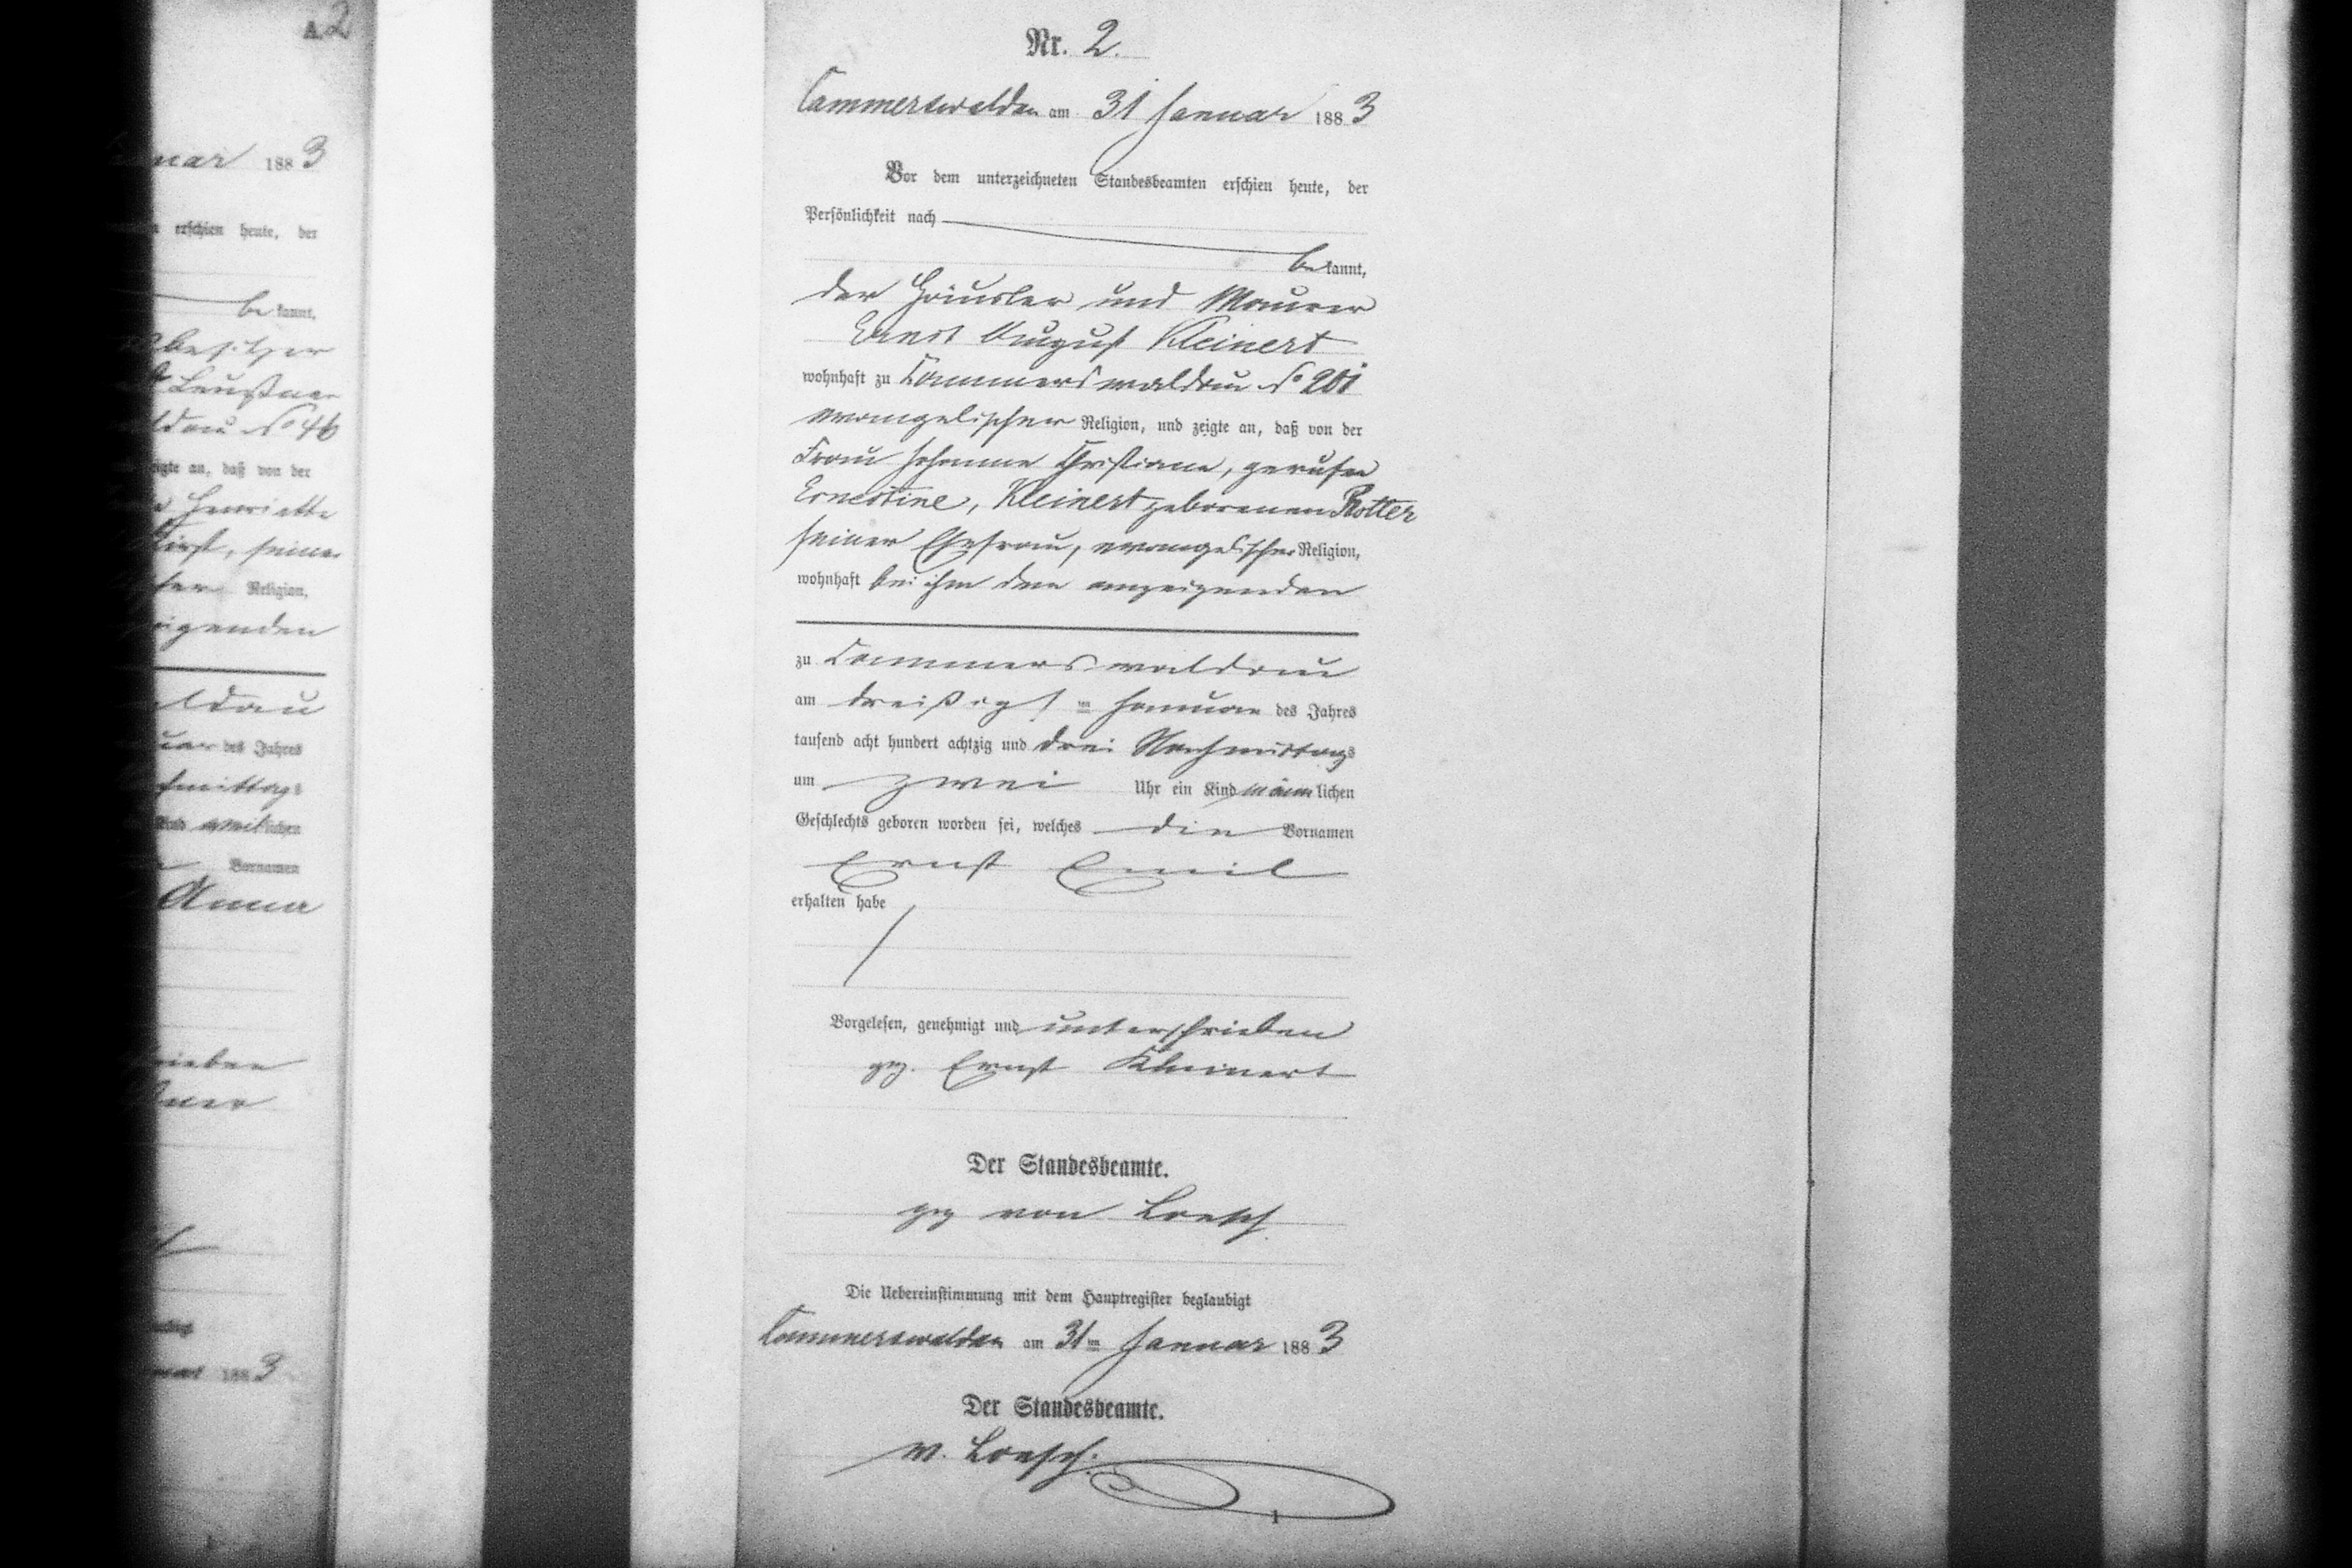 A2
nuar 1883
erschien heute, der
be kannt,
besitzer
ldau No 46
zeigte an, daß von der
Henriette
seiner
Religion,
eigenden
ldau
des Jahres
mittags
Kind weiblichen
Vornamen
Anna
rieben
188 3
Nr. 2.
Cammerswaldau am 31 Januar 1883
Vor dem unterzeichneten Standesbeamten erschien heute, der
Persönlichkeit nach
be kannt,
der Häusler und Maurer
Ernst August Kleinert
wohnhaft zu Cammerswaldau No 201
evangelischer Religion, und zeigte an, daß von der
Frau Johanne Christiane, gerufen
Ernestine, Kleinert geborenen Rotter
seiner Ehefrau, evangelischer Religion,
wohnhaft bei ihm dem anzeigenden
zu Cammerswaldau
am dreißigsten Januar des Jahres
tausend acht hundert achtzig und drei Nachmittags
um zwei Uhr ein Kind männlichen
Geschlechts geboren worden sei, welches die Vornamen
Ernst Emil
erhalten habe
Vorgelesen, genehmigt und unterschrieben
gez. Ernst Kleinert
Der Standesbeamte.
gez von Loesch
Die Uebereinstimmung mit dem Hauptregister beglaubigt
Cammerswaldau am 31ten Januar 1883
Der Standesbeamte.
v. Loesch.
1